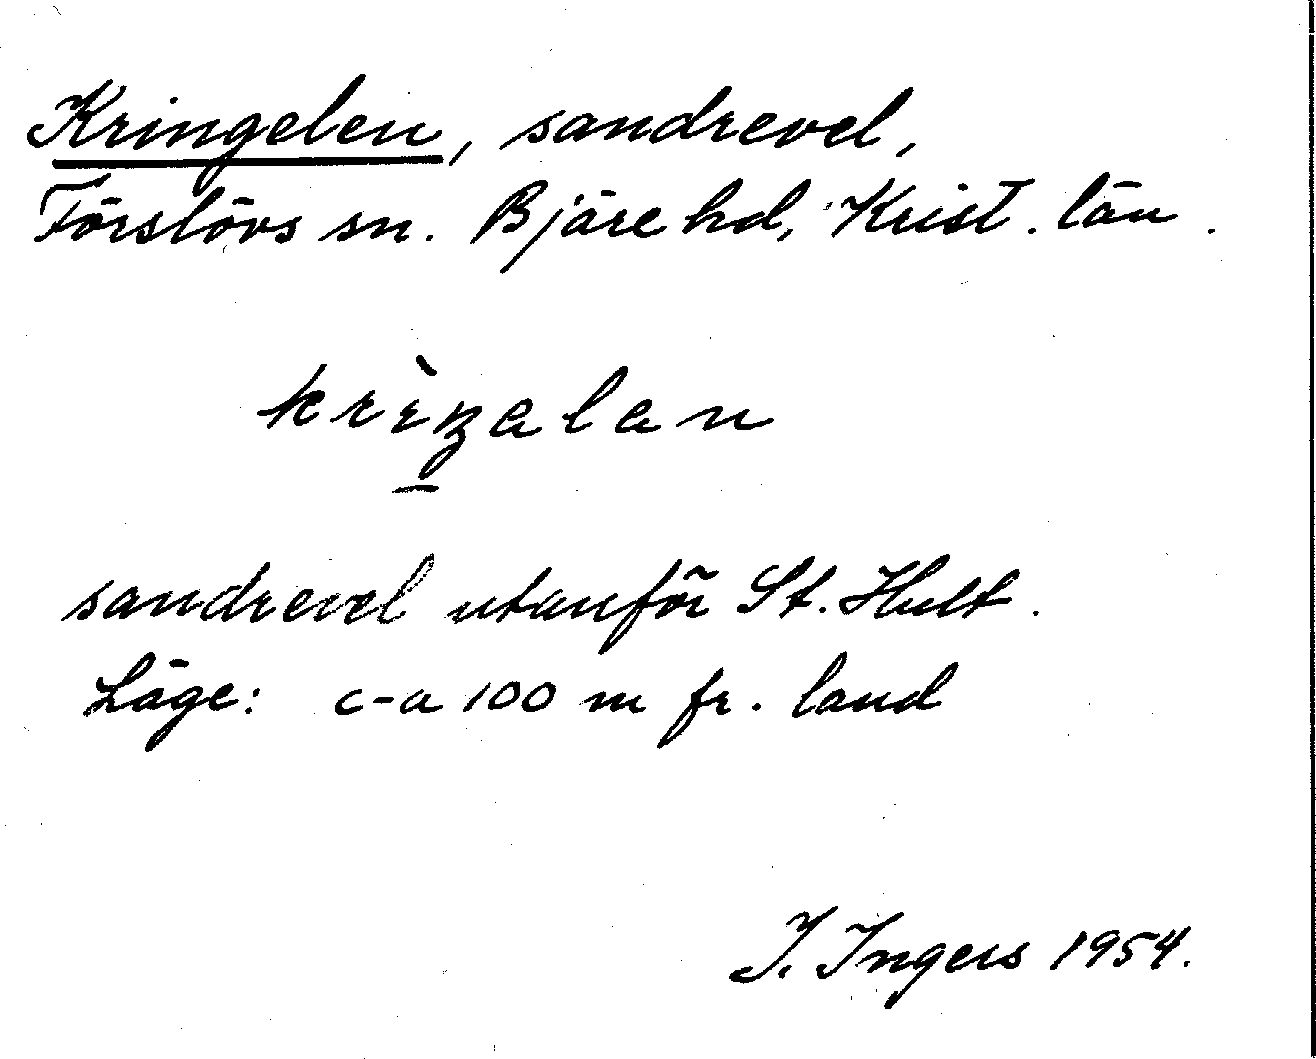 Kringelen, sandrevel,
Förslövs sn. Bjäre hd, Krist. län.
krìŋalan
sandrevel utanför St. Hult.
Läge: c-a 100 m fr. land
I. Ingers 1954.